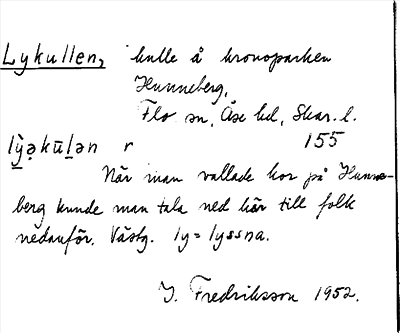 Lykullen, kulle å kronoparken
Hunneberg,
Flo sn, Åse hd, Skar. l.
lỳ̠ə̣kūl̠ən r 155
När man vallade kor på Hunne-
berg kunde man tala ned här till folk
nedanför. Västg. ly = lyssna.
J. Fredriksson 1952.